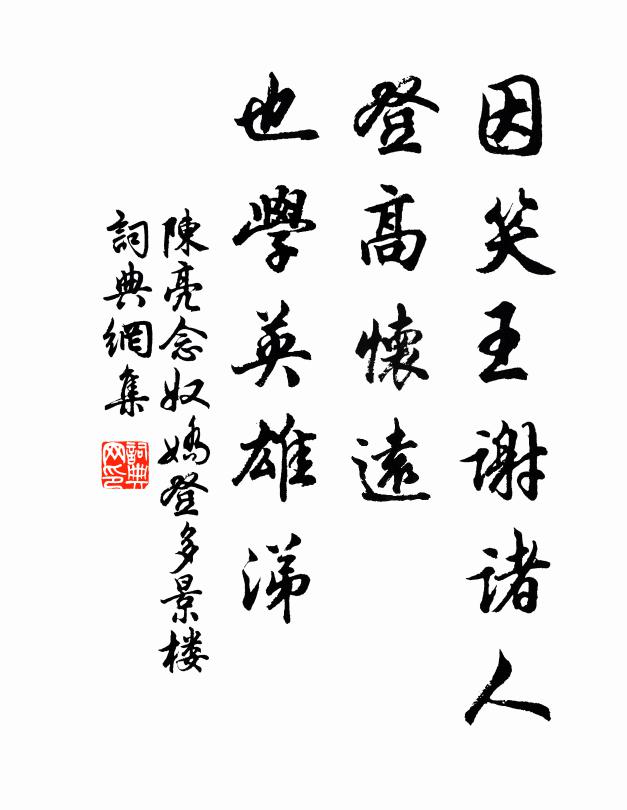 因笑王谢诸人
登高懷遠
也學英雄涕
陳亮念奴嬌登多景楼
詞典網集
詞典
网印